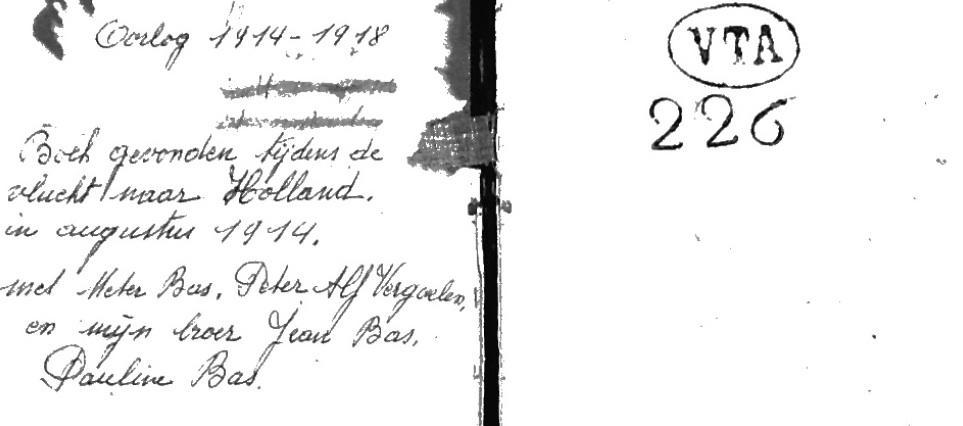 Oorlog 1914-1918
Boek gevonden tijdens de
vlucht naar Holland.
in augustus 1914.
met Meter Bas. Peter Alf
en mijn broer Jean Bas.
Pauline Bas.
VTA
226